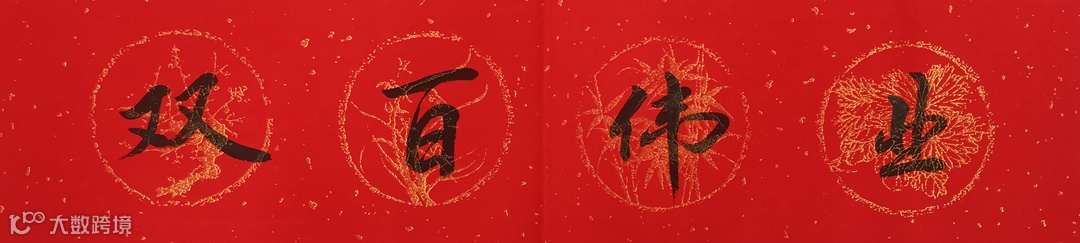 双百伟业
大数跨境